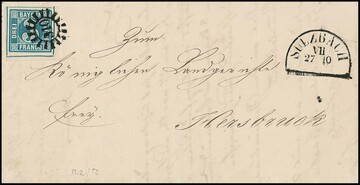 BAYERN
DREI
FRANCO
SULZBACH
VII
27 10
Zum
Königlichen Landgerichte
Hersbruck